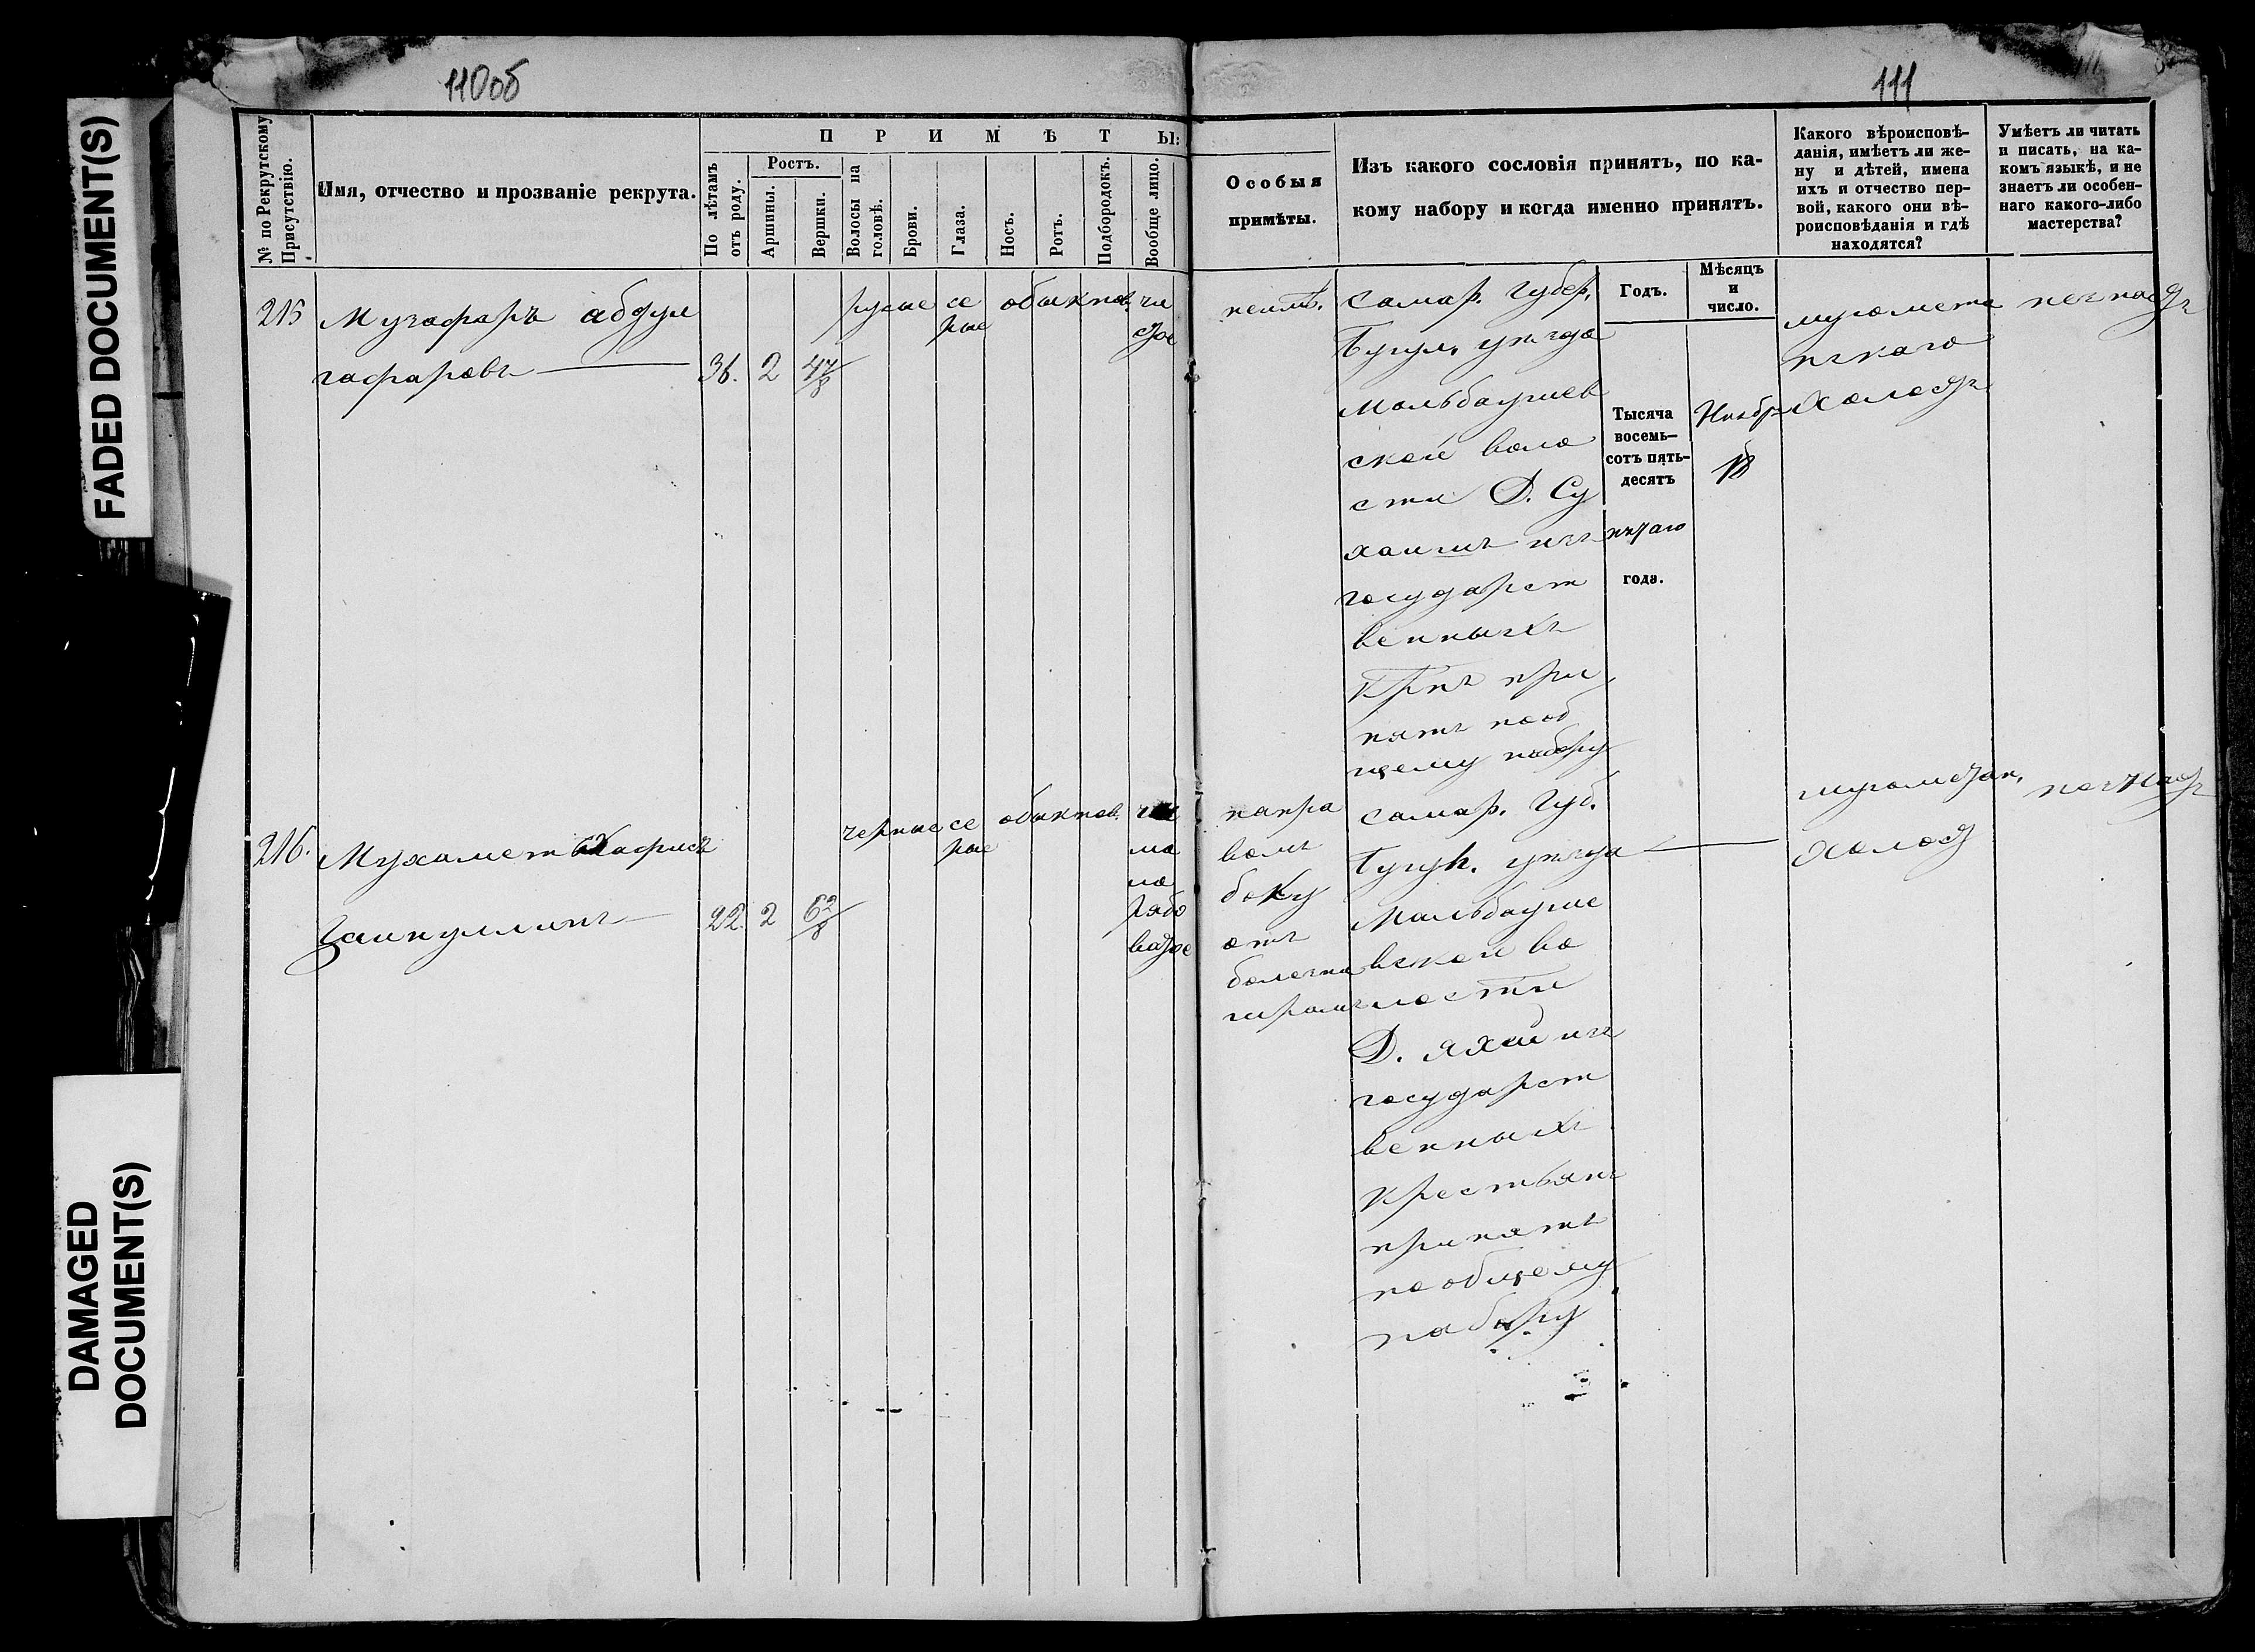 FADED DOCUMENT(S)
DAMAGED
DOCUMENT(S)
110об
111
№ по Рекрутскому
Присутствію.
Имя, отчество и прозваніе рекрута.
ПРИМѢТЫ:
По лѣтамъ
отъ роду.
Ростъ.
Аршины.
Вершки.
Волосы на
головѣ.
Брови.
Глаза.
Носъ.
Ротъ.
Подбородокъ.
Вообще лицо.
Особыя
примѣты.
Изъ какого сословія принятъ, по ка-
кому набору и когда именно принятъ.
Какого вѣроисповѣ-
данія, имѣетъ ли же-
ну и дѣтей, имена
ихъ и отчество пер-
вой, какого они вѣ-
роисповѣданія и гдѣ
находятся?
Умѣетъ ли читать
и писать, на ка-
комъ языкѣ, и не
знаетъ ли особен-
наго какого-либо
мастерства?
Годъ.
Мѣсяцъ
и
число.
215
Музафаръ абдул
гафаровъ
36. 2 4 7/8
русые
се
рые
обыкнов.
чи
стое
неимѣ.
Самар. Губер.
Бугул. уѣзда
Мальбагушев
ской воло
сти Д. Су
государст
венныхъ
Крнъ при
нятъ пооб
щему набору
Тысяча
восемь-
сотъ пять-
десятъ
пятаго
года.
Ноябр
18
магомета
нскаго
Холостъ
незнаетъ
216.
Мухаметъ Хафисъ
Заинуллинъ
22. 2 6 2/8
черные
се
рые
обыкнов.
ма
ло
рябо
ватое
направа
вомъ
боку
отъ
болезни
шрамъ
Самар. Губ.
Бугул. уѣзда
Мальбагуше
вской во
лости
Д. Яхаи изъ
государст
венныхъ
Крестьянъ
принятъ
пообщему
набору
магометан.
Холост
незнаетъ